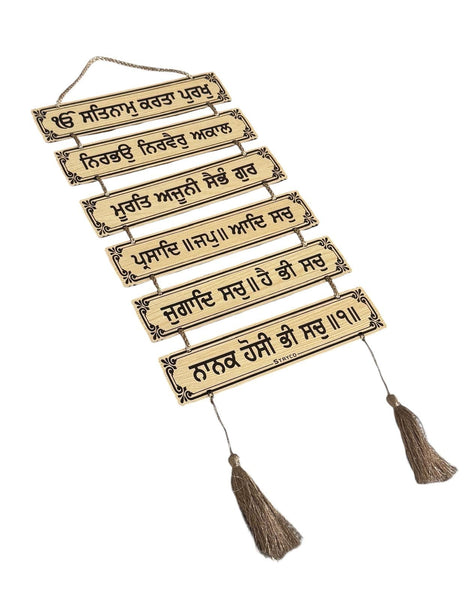 ੴ ਸਤਿਨਾਮੁ ਕਰਤਾ ਪੁਰਖੁ
ਨਿਰਭਉ ਨਿਰਵੈਰੁ ਅਕਾਲ
ਮੂਰਤਿ ਅਜੂਨੀ ਸੈਭੰ ਗੁਰ
ਪ੍ਰਸਾਦਿ ॥ਜਪੁ॥ ਆਦਿ ਸਚੁ
ਜੁਗਾਦਿ ਸਚੁ॥ ਹੈ ਭੀ ਸਚੁ
ਨਾਨਕ ਹੋਸੀ ਭੀ ਸਚੁ ॥੧॥
STRYCO